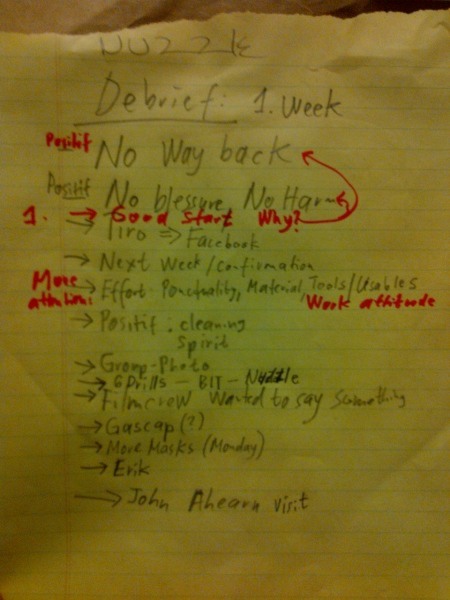 NUZZLE
Debrief: 1. Week
Positif No Way back
Positif No blessure No Harm
1. → Good start Why?
→ Tiro => Facebook
→ Next Week/confirmation
More attention: → Effort Punctuality, Material, Tools/Usables
Work attitude
→ Positif: cleaning
spirit
→ Group-Photo
→ 6 Drills - BIT - Nozzle
→ Filmcrew Wanted to say something
→ Gascap (?)
→ More Masks (Monday)
→ Erik
→ John Ahearn visit